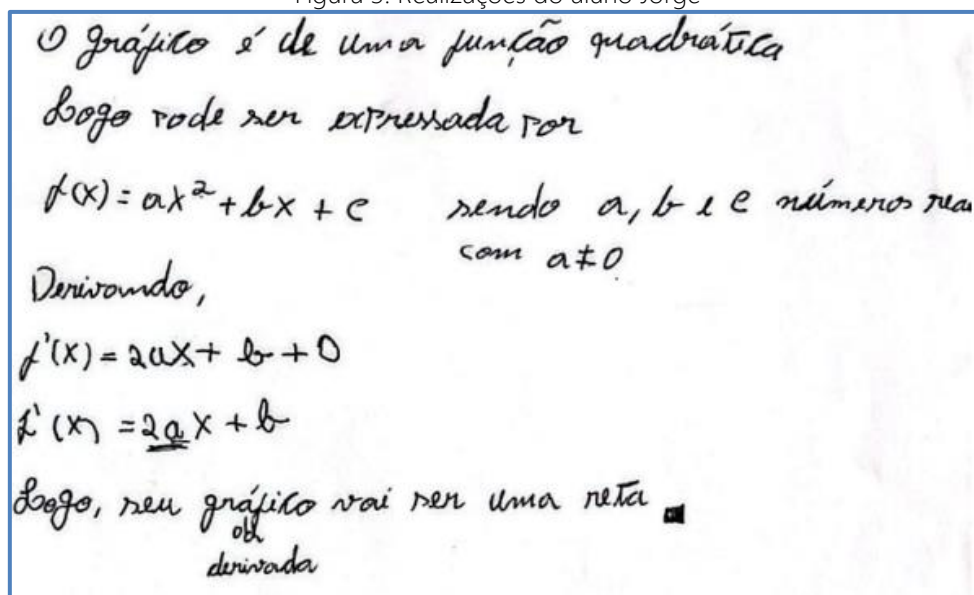 Figura 5: Realizações do aluno Jorge
O gráfico é de uma função quadrática
Logo pode ser expressada por
f(x) = ax² + bx + c sendo a, b e c números rea
com a ≠ 0
Derivando,
f'(x) = 2ax + b + 0
f'(x) = 2ax + b
Logo, seu gráfico vai ser uma reta ■
da
derivada